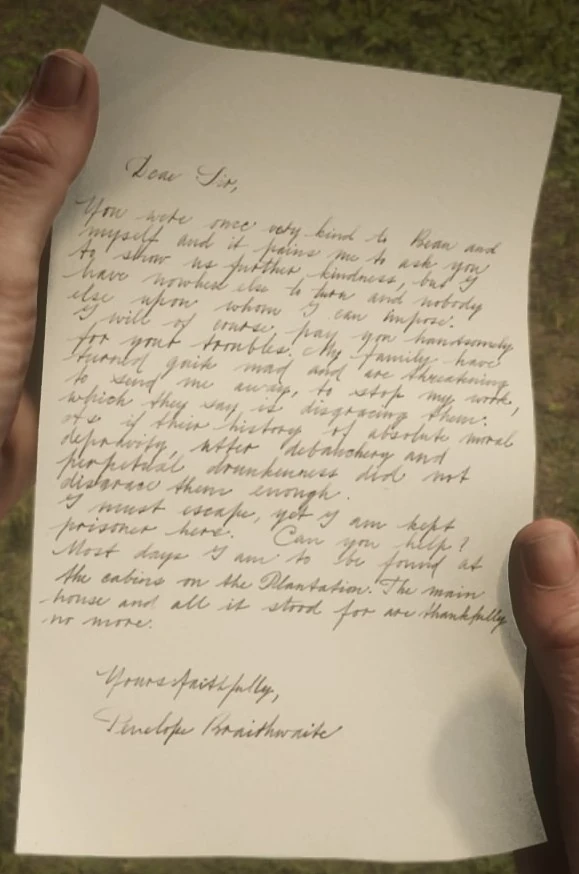 Dear Sir,
You were once very kind to Beau and
myself and it pains me to ask you
to show us further kindness, but I
have nowhere else to turn and nobody
else upon whom I can impose.
I will of course, pay you handsomely
for your troubles. My family have
turned quite mad and are threatening
to send me away, to stop my work,
which they say is disgracing them.
As if their history of absolute moral
depravity, utter debauchery and
perpetual drunkenness did not
disgrace them enough.
I must escape, yet I am kept
prisoner here. Can you help?
Most days I am to be found at
the cabins on the Plantation. The main
house and all it stood for are thankfully
no more.
Yours faithfully,
Penelope Braithwaite